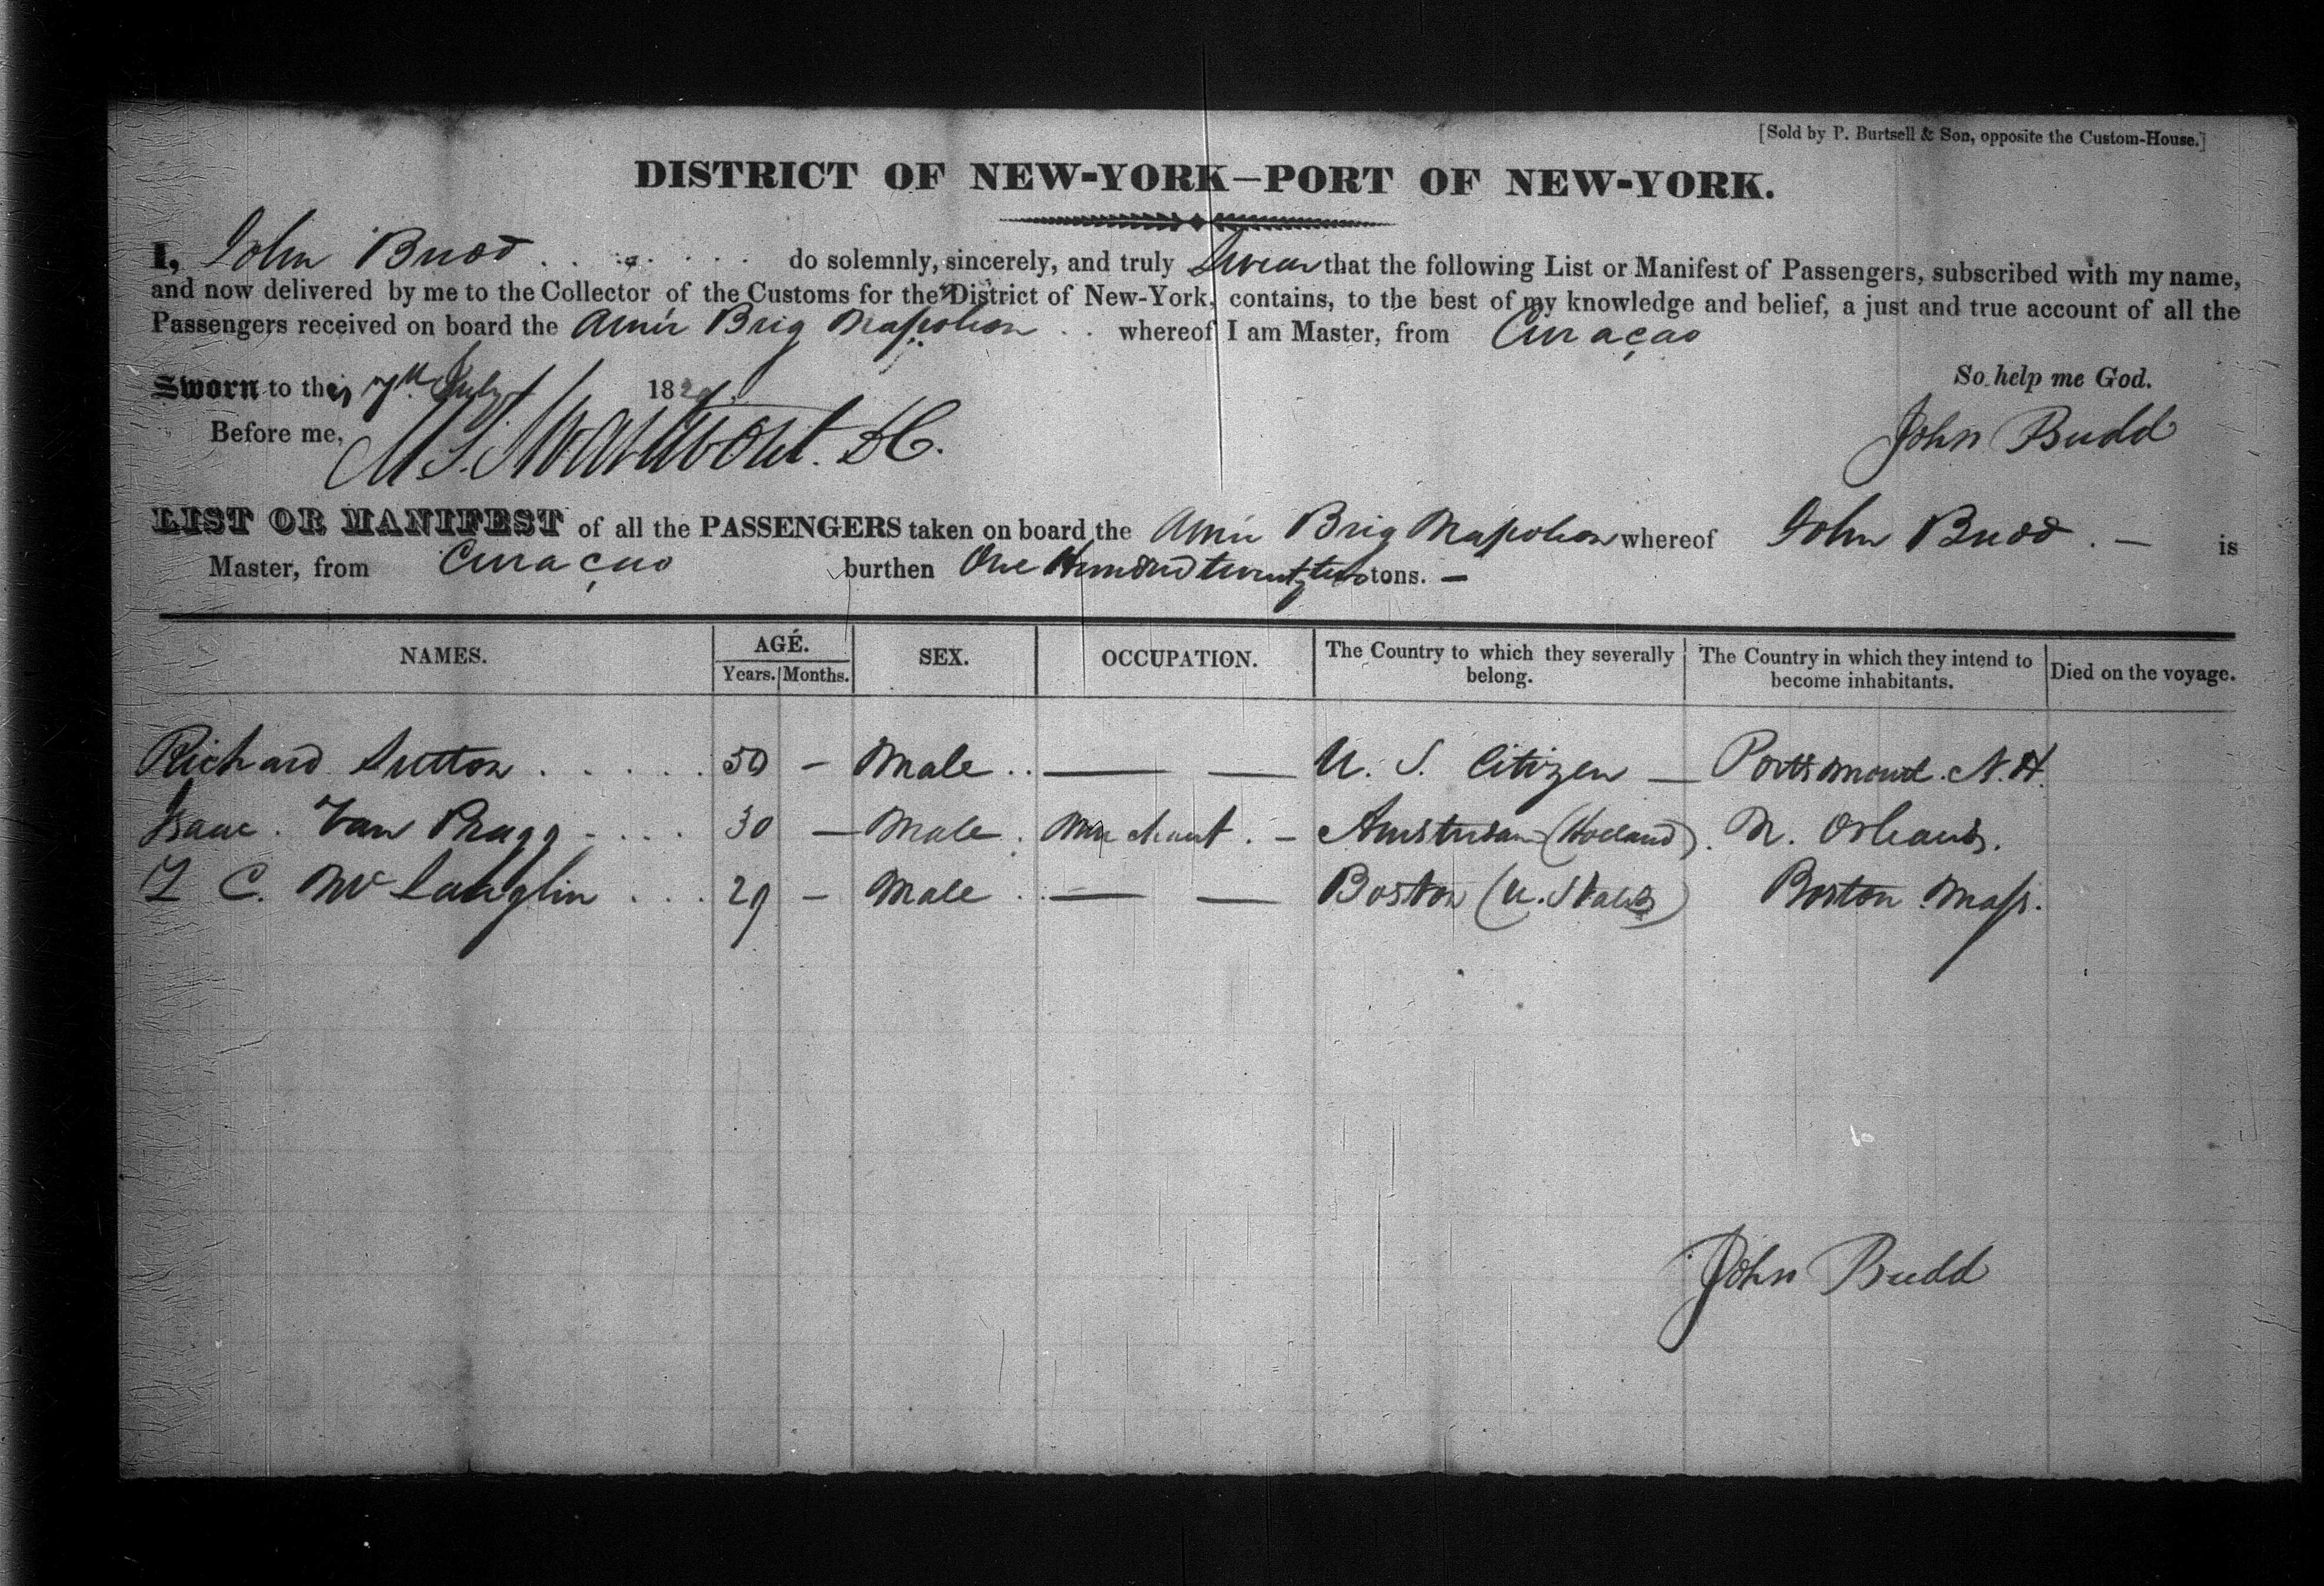 [Sold by P. Burtsell & Son, opposite the Custom-House.]
DISTRICT OF NEW-YORK—PORT OF NEW-YORK.
I, John Budd do solemnly, sincerely, and truly Swear that the following List or Manifest of Passengers, subscribed with my name,
and now delivered by me to the Collector of the Customs for the District of New-York, contains, to the best of my knowledge and belief, a just and true account of all the
Passengers received on board the Amr Brig Napoleon whereof I am Master, from Curaçao
So help me God.
Sworn to this 7th July 1829.
Before me, M S. Swartwout. DC.
John Budd
LIST OR MANIFEST of all the PASSENGERS taken on board the Amr Brig Napoleon whereof John Budd. — is
Master, from Curaçao burthen One Hundred twenty two tons. —
NAMES. AGE. Years. Months. SEX. OCCUPATION. The Country to which they severally belong. The Country in which they intend to become inhabitants. Died on the voyage.
Richard Sutton 50 — Male — — U. S. Citizen — Portsmout. N. H.
Isaac. Van Pragg 30 — Male. Merchant. — Amsterdam (Holland). N. Orleans.
C. Mc Lauglin 29 — Male — — Boston (U. States) Boston Mass.
John Budd